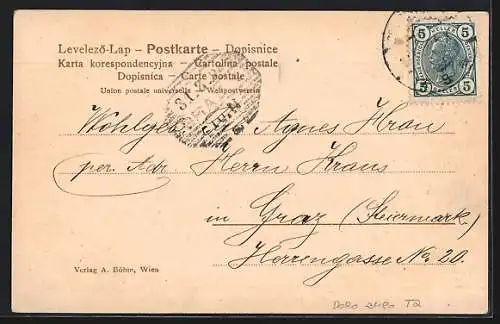 Levelező-Lap – Postkarte – Dopisnice
Karta korespondencyjna – Cartolina postale
Dopisnica – Carte postale
Union postale universelle – Weltpostverein
5 5
5 5
Agnes Hrau
per Adr Herrn Kraus
in Graz (Steiermark)
Herrengasse No 20.
Verlag A. Böhm, Wien